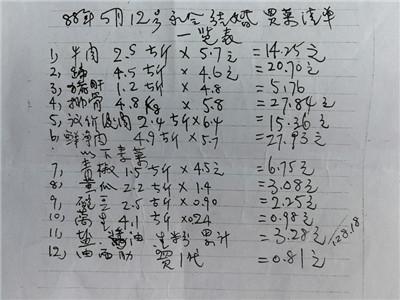 88年5月12号 结婚 买菜清单
一览表
1, 牛肉 2.5 斤 × 5.7元 = 14.25元
2, 4.5 斤 × 4.6元 = 20.70元
3, 猪肝 1.2 斤 × 4.8 = 5.76
4, 排骨 4.8 Kg × 5.8 = 27.84元
5, 肉 2.4 斤 × 6.4 = 15.36元
6, 鲜净肉 4.9 斤 × 5.7 = 27.93元
以下素菜
7, 青椒 1.5 斤 × 4.5元 = 6.75元
8, 黄瓜 2.2 斤 × 1.4 = 3.08元
9, 豌豆 2.5 斤 × 0.90 = 2.25元
10, 莴笋 4.1 斤 × 0.24 = 0.98元
11, 盐 酱油 生粉 累计 = 3.28元 128.18
12, 买1代 = 0.81元